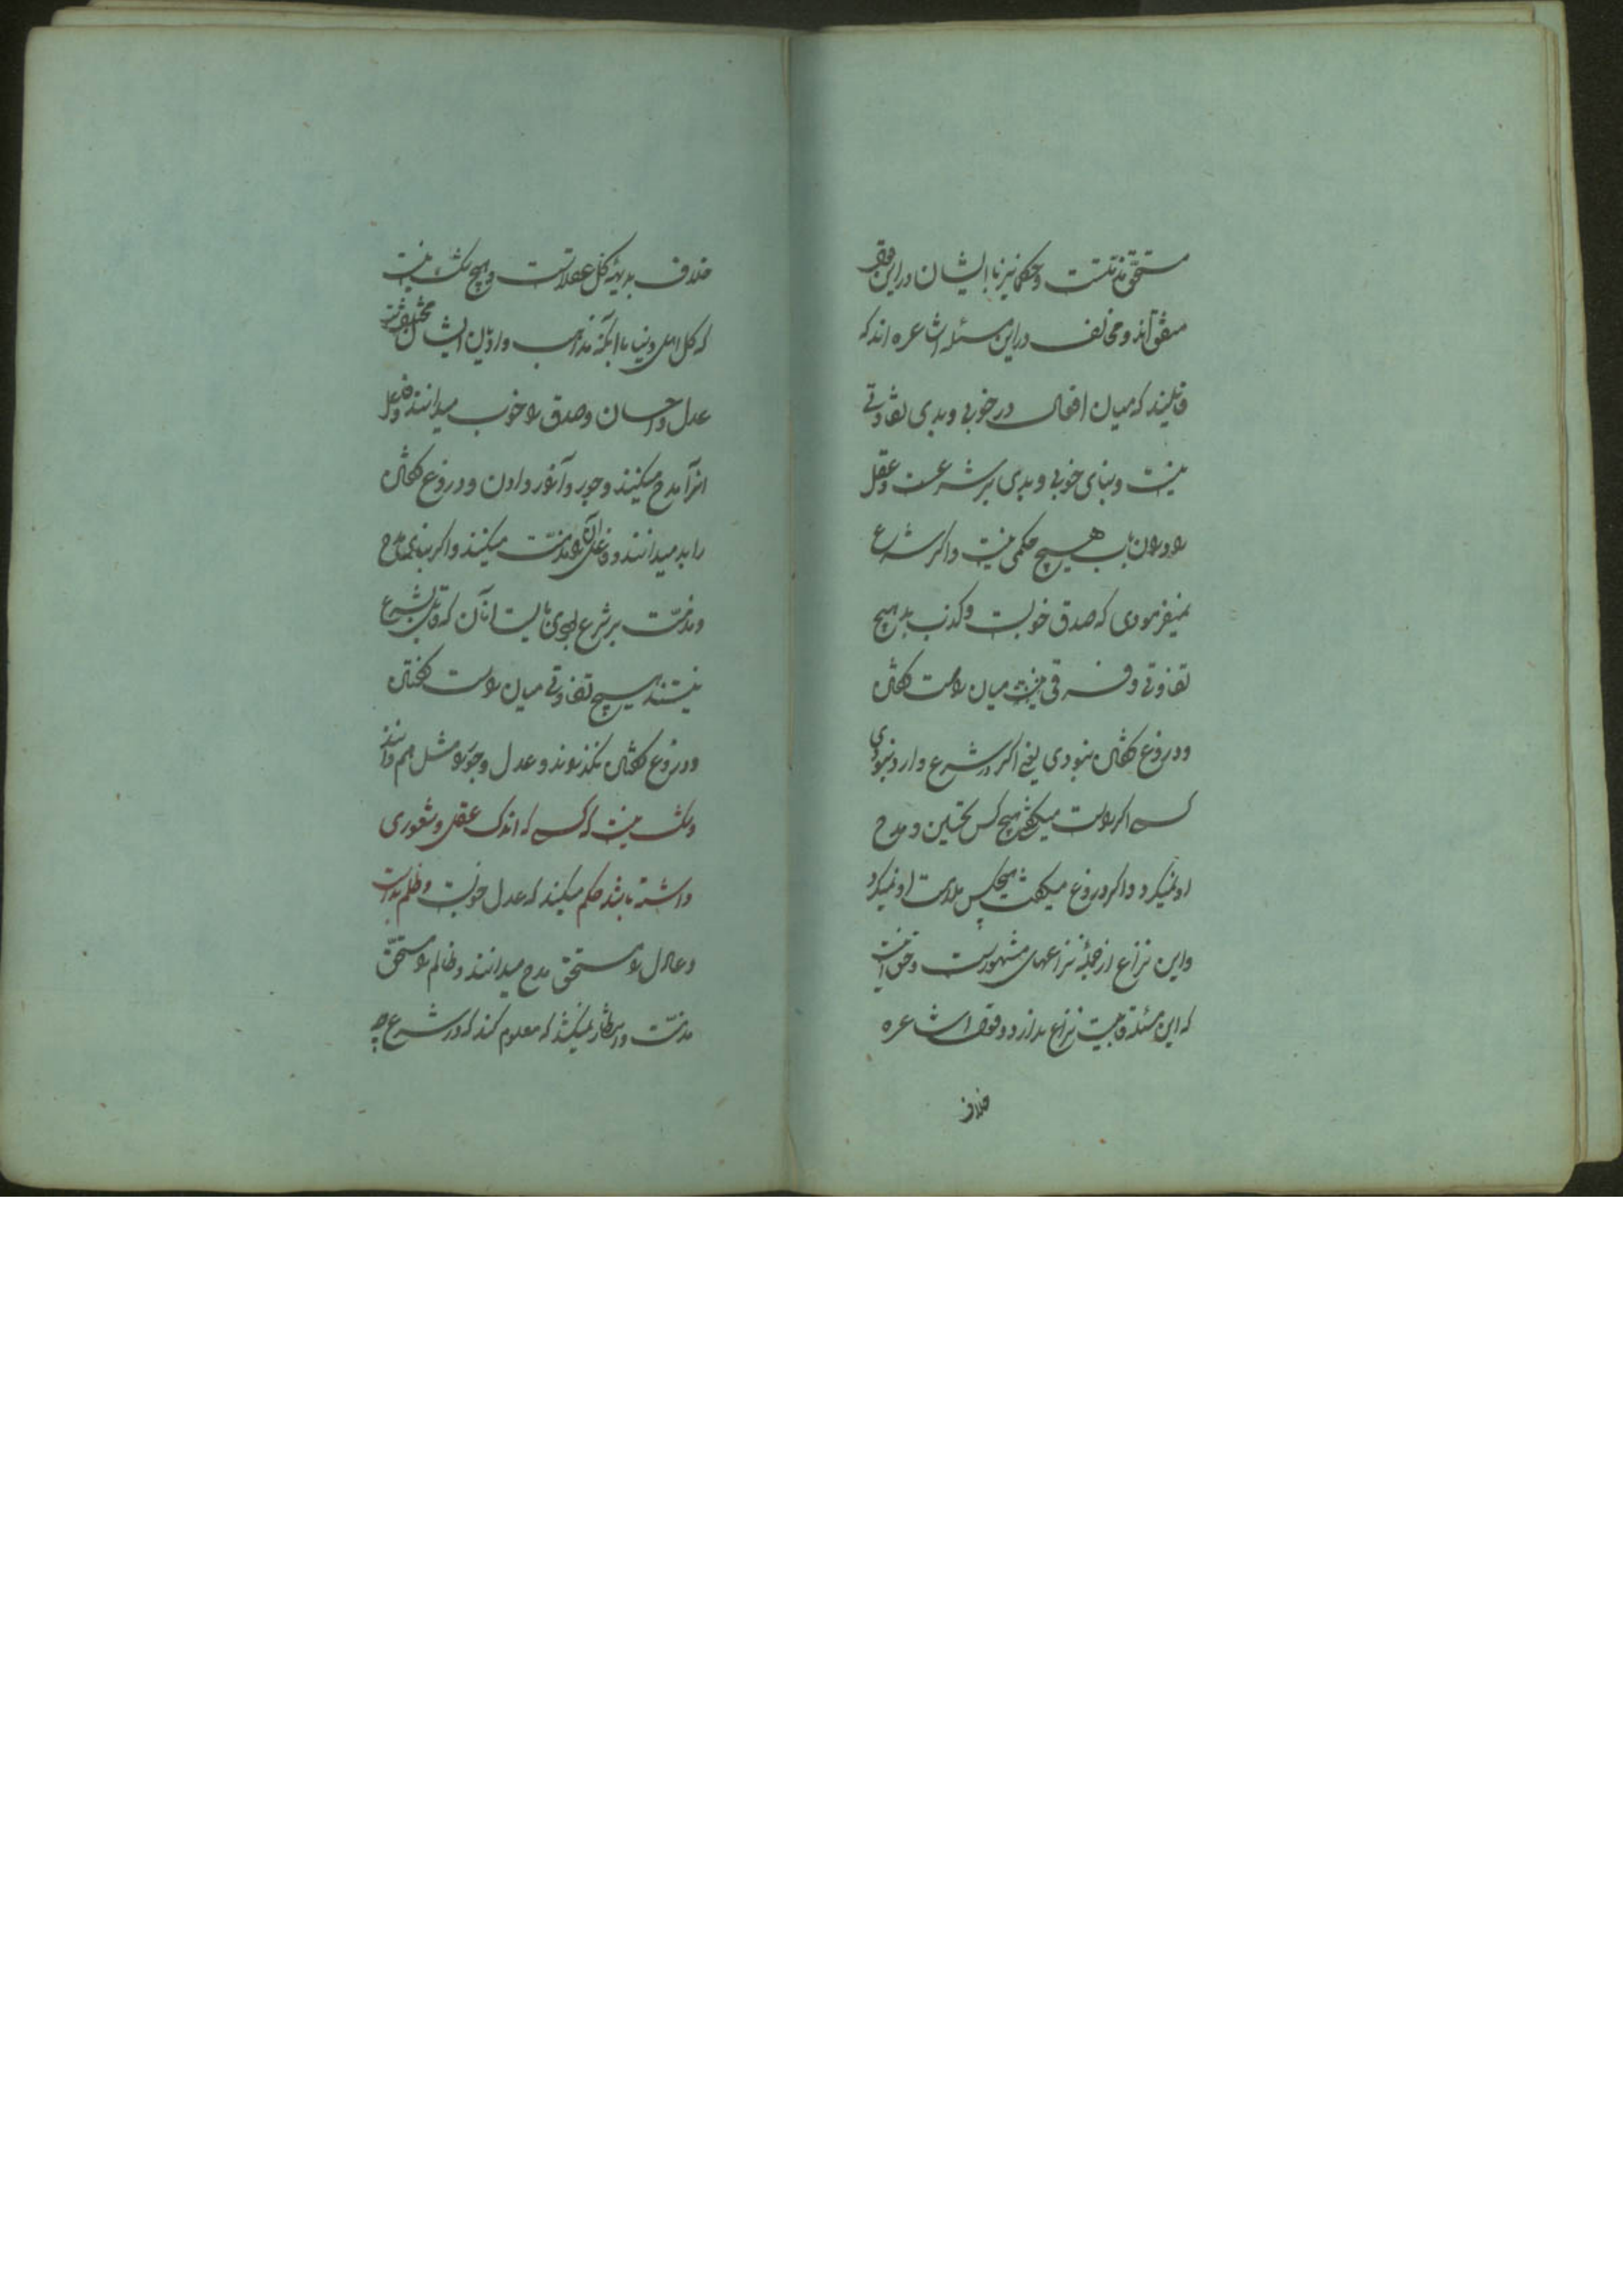 مستحق مذمتست و حکما نیز با ایشان در این قول
متفق‌اند و مخالف در این مسئله اشاعره اند که
قائلیند که میان افعال در خوبی و بدی تفاوتی
نیست و بنای خوبی و بدی بر شرعست و عقل
را در این باب هیچ حکمی نیست و اگر شرع
نمیفرمودی که صدق خوبست و کذب بد هیچ
تفاوتی و فرقی میان راست گفتن
و دروغ گفتن نبودی یعنی اگر در شرع وارد نبودی
کسی اگر راست میگفت هیچ کس تحسین و مدح
او نمیکرد و اگر دروغ میگفت هیچکس ملامت او نمیکرد
و این نزاع از جمله نزاعهای مشهورست و حق آنست
که این مسئله قابلیت نزاع ندارد و قول اشاعره
خلاف
خلاف بدیهه کل عقلاست و هیچ شک نیست
که کل اهل دنیا با آنکه مذاهب و ادیان ایشان مختلفست
عدل و احسان و صدق را خوب میدانند و فاعل
آنرا مدح میکنند و جور و آزار دادن و دروغ گفتن
را بد میدانند و فاعل آن را مذمت میکنند و اگر بنای مدح
و مذمت بر شرع بودی بایست آنان که قایل بشرع
نیستند هیچ تفاوتی میان راست گفتن
و دروغ گفتن نگذارند و عدل و جور را مثل هم دانند
و شک نیست که کسی که اندک عقل و شعوری
داشته باشد حکم میکند که عدل خوبست و ظلم بد است
و عادل را مستحق مدح میدانند و ظالم را مستحق
مذمت و انتظار نمیکشد که معلوم کند که در شرع چه